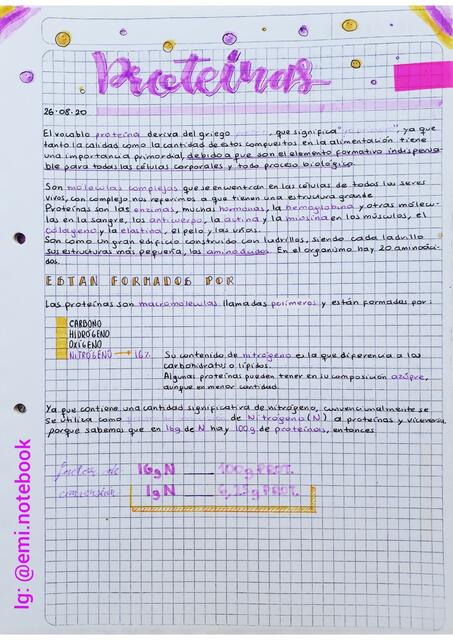 Proteínas
26·08·20
El vocablo proteína deriva del griego , que significa " ", ya que
tanto la calidad como la cantidad de estos compuestos en la alimentación tiene
una importancia primordial, debido a que son el elemento formativo indispensa-
ble para todas las células corporales y todo proceso biológico.
Son moléculas complejas que se encuentran en las células de todos los seres
vivos, con complejo nos referimos a que tienen una estructura grande
Proteínas son las enzimas, muchas hormonas, la hemoglobina y otras molécu-
las en la sangre, los anticuerpo, la actina y la miosina en los músculos, el
colágeno y la elastina, el pelo y las uñas.
Son como un gran edificio construido con ladrillos, siendo cada ladrillo
sus estructuras más pequeña, los aminoácidos. En el organismo hay 20 aminoáci-
dos.
ESTAN FORMADOS POR
Las proteínas son macromoleculas llamadas polímeros y están formadas por:
CARBONO
HIDRÓGENO
OXÍGENO
NITRÓGENO → 16% Su contenido de nitrógeno es la que diferencia a los
carbohidratos o lípidos.
Algunas proteínas pueden tener en su composición azúfre,
aunque en menor cantidad.
Ya que contiene una cantidad significativa de nitrógeno, convencionalmente se
se utiliza como de Nitrógeno (N) a proteínas y viceversa
porque sabemos que en 16g de N hay 100g de proteínas, entonces
factor de 16g N ___ 100g PROT.
conversión 1g N ___ 6,25g PROT.
Ig: @emi.notebook